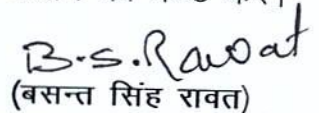 B.S.Rawat
(बसन्त सिंह रावत)